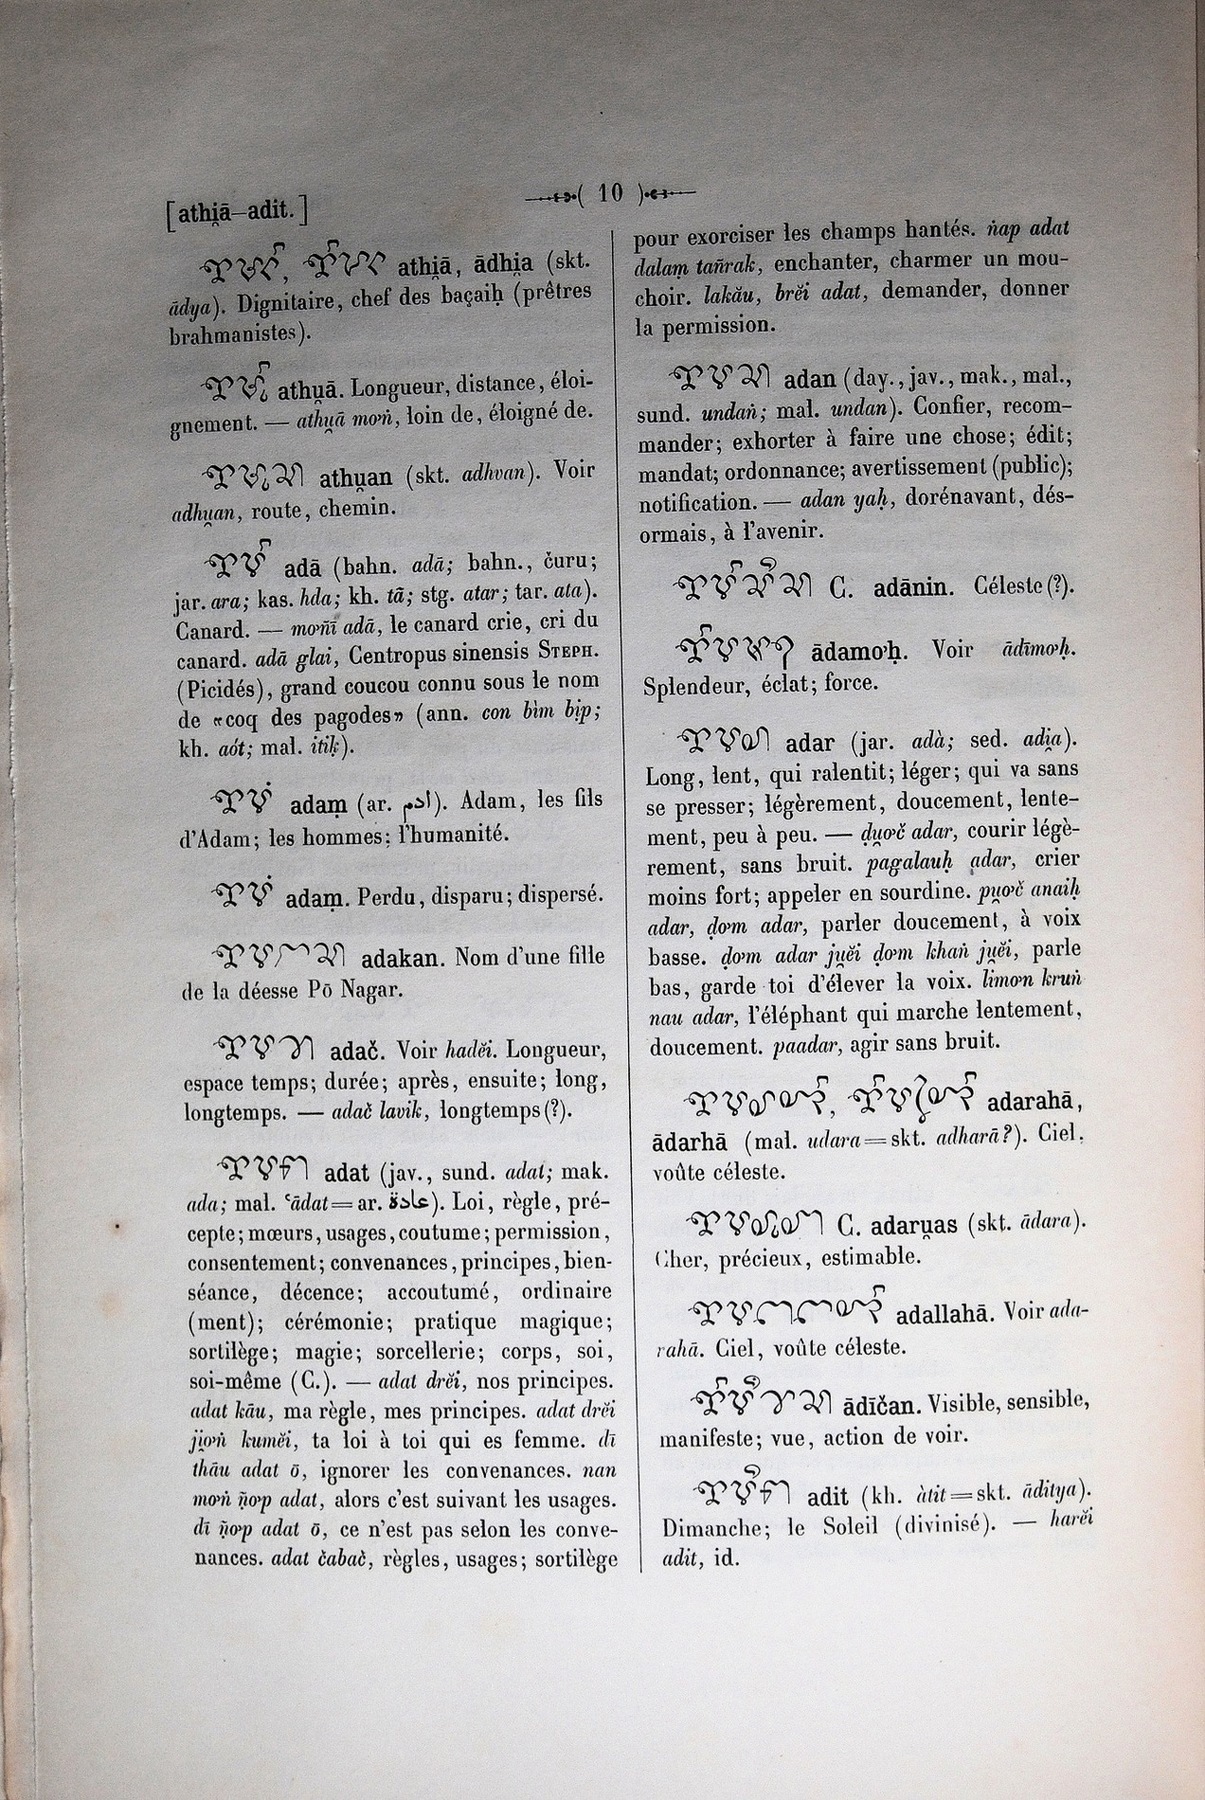 [athi̯ā—adit.]
( 10 )
athi̯ā, ādhi̯a (skt.
ādya). Dignitaire, chef des baçaiḥ (prêtres
brahmanistes).
athu̯ā. Longueur, distance, éloi-
gnement. — athu̯ā moʼṅ, loin de, éloigné de.
athu̯an (skt. adhvan). Voir
adhu̯an, route, chemin.
adā (bahn. adā; bahn., čuru;
jar. ara; kas. hda; kh. tā; stg. atar; tar. ata).
Canard. — moʼñī adā, le canard crie, cri du
canard. adā glai, Centropus sinensis STEPH.
(Picidés), grand coucou connu sous le nom
de «coq des pagodes» (ann. con bìm bịp;
kh. aót; mal. itiḳ).
adaṃ (ar. ادم). Adam, les fils
d'Adam; les hommes; l'humanité.
adaṃ. Perdu, disparu; dispersé.
adakan. Nom d'une fille
de la déesse Pō Nagar.
adač. Voir hadĕi. Longueur,
espace temps; durée; après, ensuite; long,
longtemps. — adač lavik, longtemps (?).
adat (jav., sund. adat; mak.
ada; mal. ʿādat = ar. عادة). Loi, règle, pré-
cepte; mœurs, usages, coutume; permission,
consentement; convenances, principes, bien-
séance, décence; accoutumé, ordinaire
(ment); cérémonie; pratique magique;
sortilège; magie; sorcellerie; corps, soi,
soi-même (C.). — adat drĕi, nos principes.
adat kāu, ma règle, mes principes. adat drĕi
ji̯oʼṅ kumĕi, ta loi à toi qui es femme. dī
thāu adat ō, ignorer les convenances. nan
moʼṅ ñ̯oʼp adat, alors c'est suivant les usages.
dī ñ̯oʼp adat ō, ce n'est pas selon les conve-
nances. adat čabač, règles, usages; sortilège
pour exorciser les champs hantés. ṅap adat
dalaṃ tañrak, enchanter, charmer un mou-
choir. lakău, brĕi adat, demander, donner
la permission.
adan (day., jav., mak., mal.,
sund. undaṅ; mal. undan). Confier, recom-
mander; exhorter à faire une chose; édit;
mandat; ordonnance; avertissement (public);
notification. — adan yaḥ, dorénavant, dés-
ormais, à l'avenir.
C. adānin. Céleste (?).
ādamoʼḥ. Voir ādīmoʼḥ.
Splendeur, éclat; force.
adar (jar. adà; sed. adi̯a).
Long, lent, qui ralentit; léger; qui va sans
se presser; légèrement, doucement, lente-
ment, peu à peu. — ḍu̯oʼč adar, courir légè-
rement, sans bruit. pagalauḥ adar, crier
moins fort; appeler en sourdine. pu̯oʼč anaiḥ
adar, ḍoʼm adar, parler doucement, à voix
basse. ḍoʼm adar ju̯ĕi ḍoʼm khaṅ ju̯ĕi, parle
bas, garde toi d'élever la voix. limoʼn kruṅ
nau adar, l'éléphant qui marche lentement,
doucement. paadar, agir sans bruit.
adarahā,
ādarhā (mal. udara = skt. adharā?). Ciel,
voûte céleste.
C. adaru̯as (skt. ādara).
Cher, précieux, estimable.
adallahā. Voir ada-
rahā. Ciel, voûte céleste.
ādīčan. Visible, sensible,
manifeste; vue, action de voir.
adit (kh. àtit = skt. āditya).
Dimanche; le Soleil (divinisé). — harĕi
adit, id.